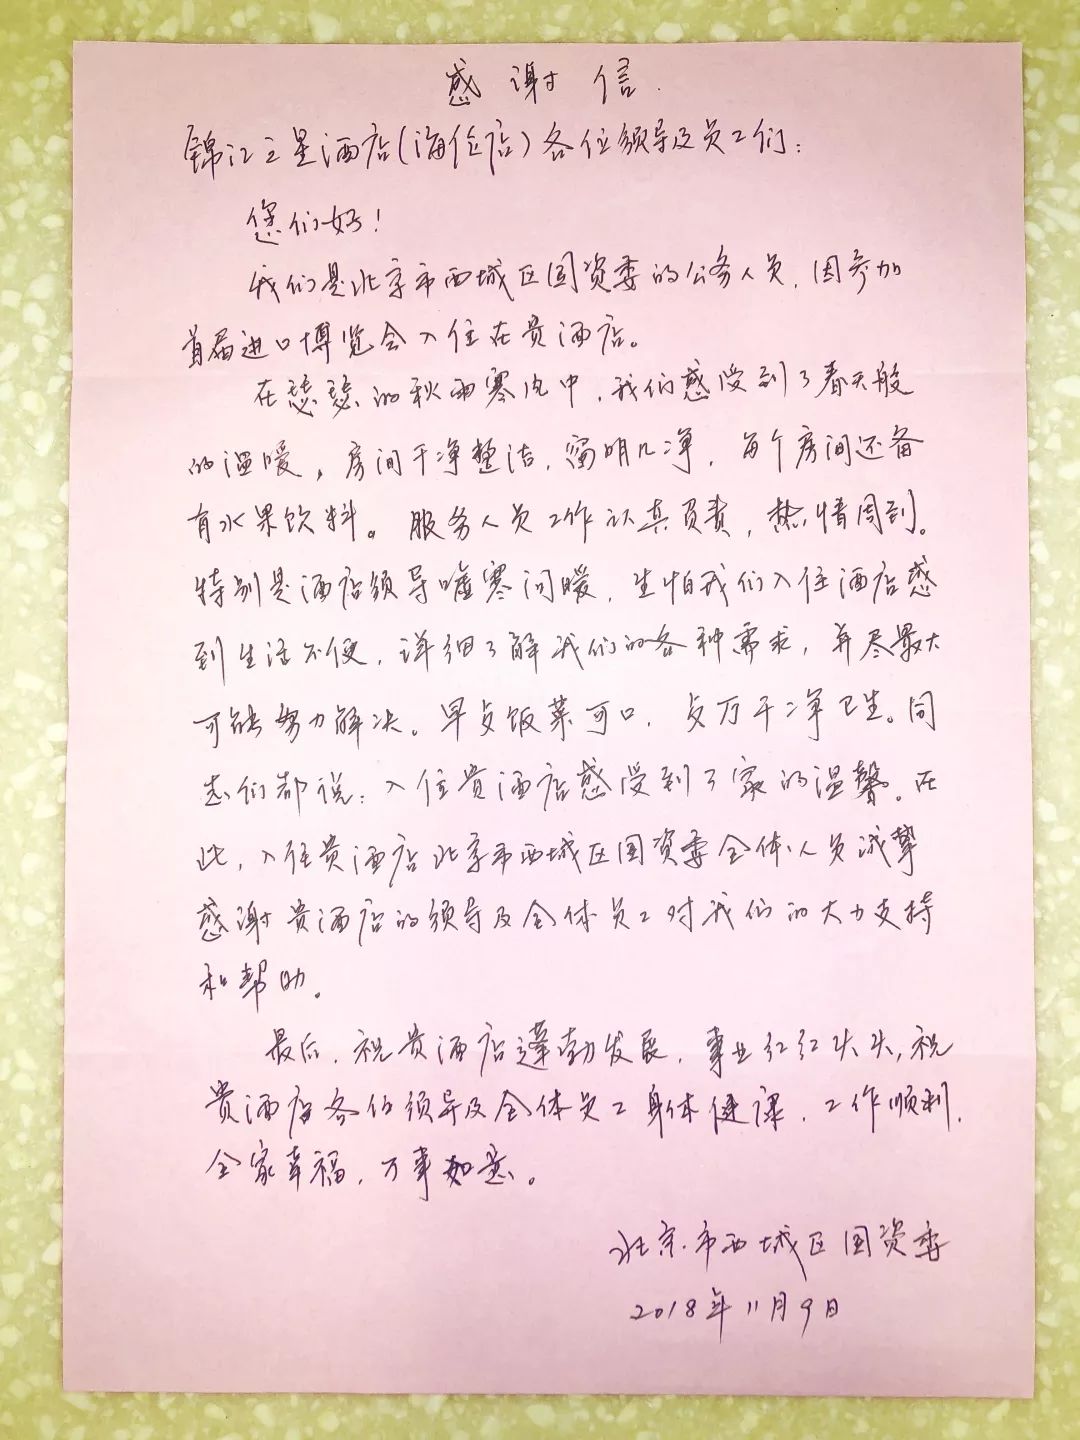 感谢信
锦江之星酒店(海伦店)各位领导及员工们:
您们好!
我们是北京市西城区国资委的公务人员,因参加
首届进口博览会入住在贵酒店。
在瑟瑟的秋雨寒风中,我们感受到了春天般
的温暖。房间干净整洁,窗明几净,每个房间还备
有水果饮料。服务人员工作认真负责,热情周到。
特别是酒店领导嘘寒问暖,生怕我们入住酒店感
到生活不便,详细了解我们的各种需求,并尽最大
可能努力解决。早点饭菜可口,点万干净卫生。同
志们都说:入住贵酒店感受到了家的温馨。在
此,入住贵酒店北京市西城区国资委全体人员诚挚
感谢贵酒店的领导及全体员工对我们的大力支持
和帮助。
最后,祝贵酒店蓬勃发展,事业红红火火,祝
贵酒店各位领导及全体员工身体健康,工作顺利,
全家幸福,万事如意。
北京市西城区国资委
2018年11月9日